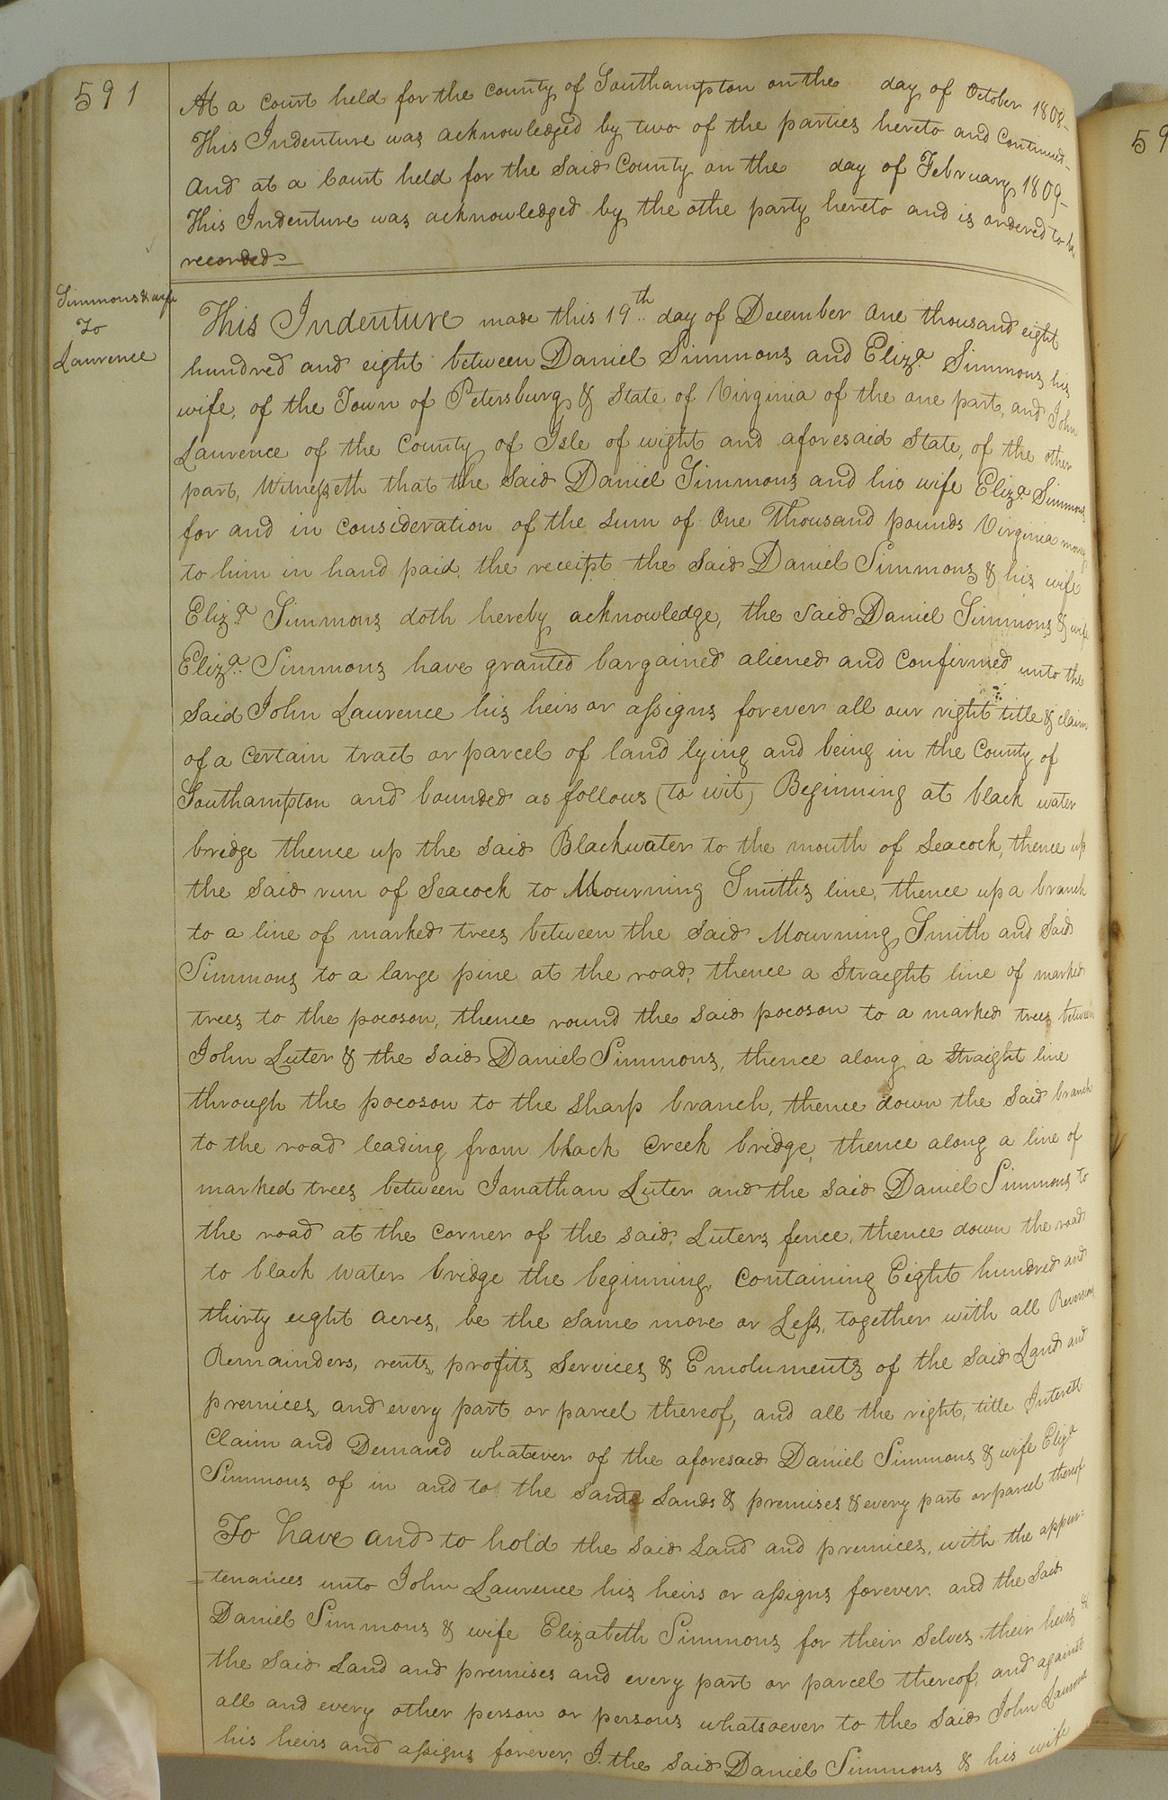 591
At a Court held for the County of Southampton on the day of October 1808-
This Indenture was acknowledged by two of the parties hereto and Continued-
And at a Court held for the said County on the day of February 1809-
This Indenture was acknowledged by the othe party hereto and is ordered to be
recorded-
Simmons & wife
To
Laurence
This Indenture made this 19th day of December one thousand eight
hundred and eight between Daniel Simmons and Eliza. Simmons his
wife, of the Town of Petersburg & State of Virginia of the one part, and John
Laurence of the County of Isle of wight and aforesaid State, of the other
part, Witnesseth that the said Daniel Simmons and his wife Eliza. Simmons
for and in consideration of the sum of One Thousand pounds Virginia money
to him in hand paid, the receipt the said Daniel Simmons & his wife
Eliza. Simmons doth hereby acknowledge, the said Daniel Simmons & wife
Eliza. Simmons have granted bargained aliened and confirmed unto the
said John Laurence his heirs or assigns forever all our right title & claim
of a certain tract or parcel of land lying and being in the County of
Southampton and bounded as follows (to wit) Beginning at black water
bridge thence up the said Blackwater to the mouth of Seacock, thence up
the said run of Seacock to Mourning Smiths line, thence up a branch
to a line of marked trees between the said Mourning Smith and said
Simmons to a large pine at the road, thence a Straeght line of marked
trees to the pocoson, thence round the said pocoson to a marked trees between
John Luter & the said Daniel Simmons, thence along a straight line
through the pocoson to the sharp branch, thence down the said branch
to the road leading from black Creek bridge, thence along a line of
marked trees between Jonathan Luter and the said Daniel Simmons to
the road at the corner of the said Luters fence, thence down the road
to black water bridge the beginning, Containing Eight hundred and
thirty eight acres, be the same more or Less, together with all Reversions
Remainders, rents, profits Services & Emoluments of the said Land and
premices, and every part or parcel thereof, and all the right, title Interest
Claim and Demand whatever of the aforesaid Daniel Simmons & wife Eliza
Simmons of in and to the same Lands & premises & every part or parcel thereof
To have and to hold the said Land and premices, with the appur=
=tenances unto John Laurence his heirs or assigns forever. and the said
Daniel Simmons & wife Elizabeth Simmons for their selves their heirs &
the said Land and premises and every part or parcel thereof, and against
all and every other person or persons whatsoever to the said John Laurence
his heirs and assigns forever. I. the said Daniel Simmons & his wife